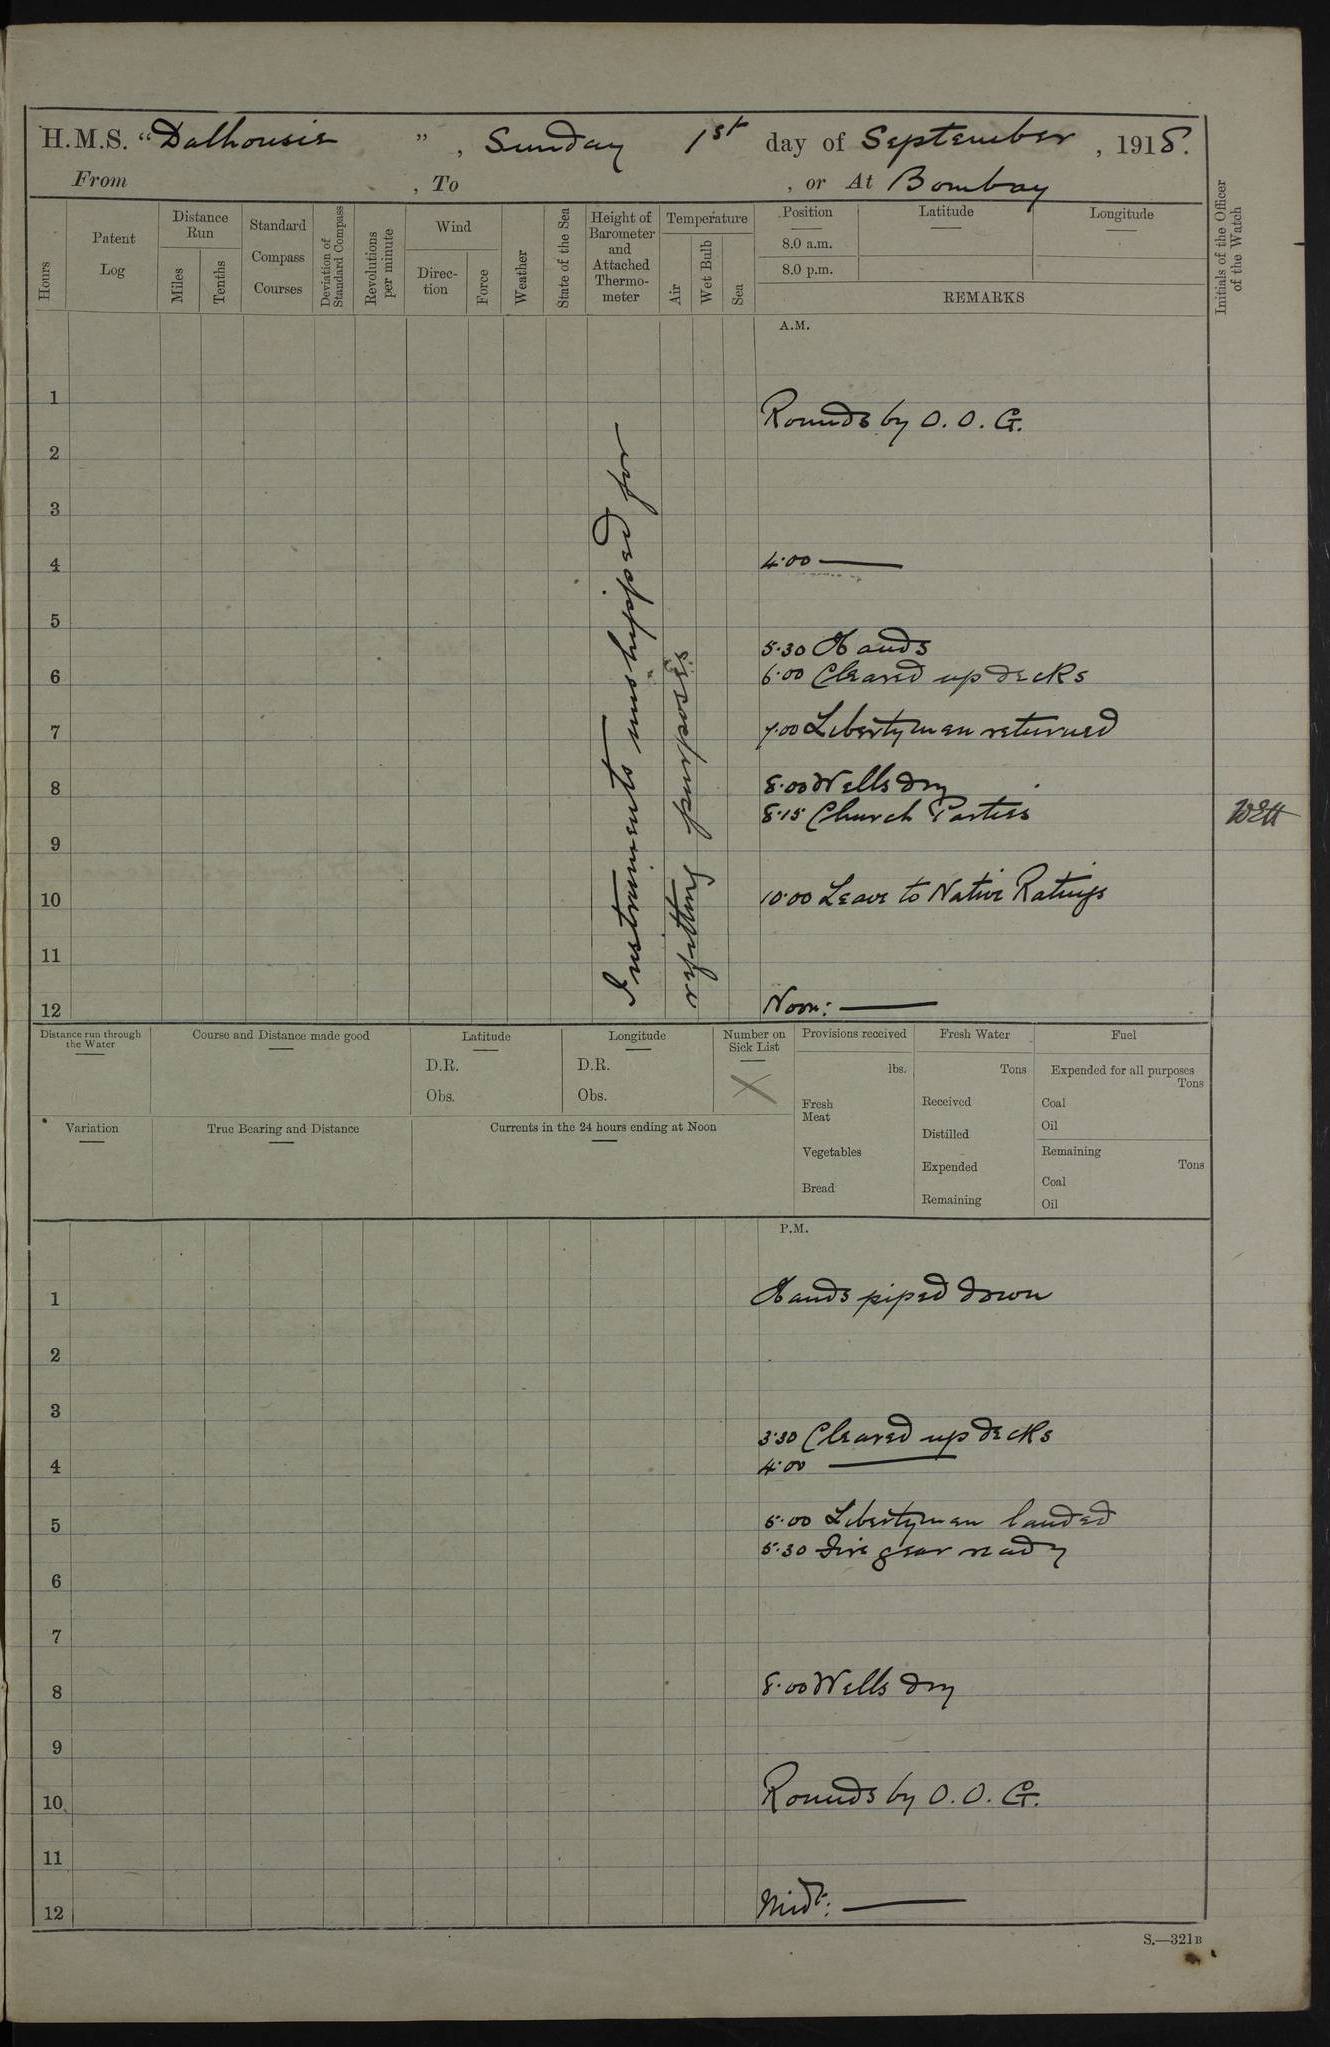 H.M.S. "Dalhousie", Sunday 1st day of September, 1918.
From , To , or At Bombay
Hours
Patent Log
Distance Run
Miles
Tenths
Standard Compass Courses
Deviation of Standard Compass
Revolutions per minute
Wind
Direction
Force
Weather
State of the Sea
Height of Barometer and Attached Thermometer
Temperature
Air
Wet Bulb
Sea
Position
8.0 a.m.
8.0 p.m.
Latitude
Longitude
REMARKS
Initials of the Officer of the Watch
A.M.
1
Rounds by O. O. G.
2
3
4
4.00 —
5
5.30 Hands
6
6.00 Cleared up decks
7
7.00 Libertymen returned
8
8.00 Wells dry
8.15 Church Parties
9
10
10.00 Leave to Native Ratings
11
12
Noon: —
Instruments unshipped for
refitting purposes
Distance run through the Water
Course and Distance made good
Latitude
D.R.
Obs.
Longitude
D.R.
Obs.
Number on Sick List
X
Provisions received
lbs.
Fresh Meat
Vegetables
Bread
Fresh Water
Tons
Received
Distilled
Expended
Remaining
Fuel
Expended for all purposes
Tons
Coal
Oil
Remaining
Tons
Coal
Oil
Variation
True Bearing and Distance
Currents in the 24 hours ending at Noon
P.M.
1
Hands piped down
2
3
3.30 Cleared up decks
4
4.00 —
5
5.00 Libertymen landed
5.30 Fire gear ready
6
7
8
8.00 Wells dry
9
10
Rounds by O. O. G.
11
12
Midt: —
S.—321B